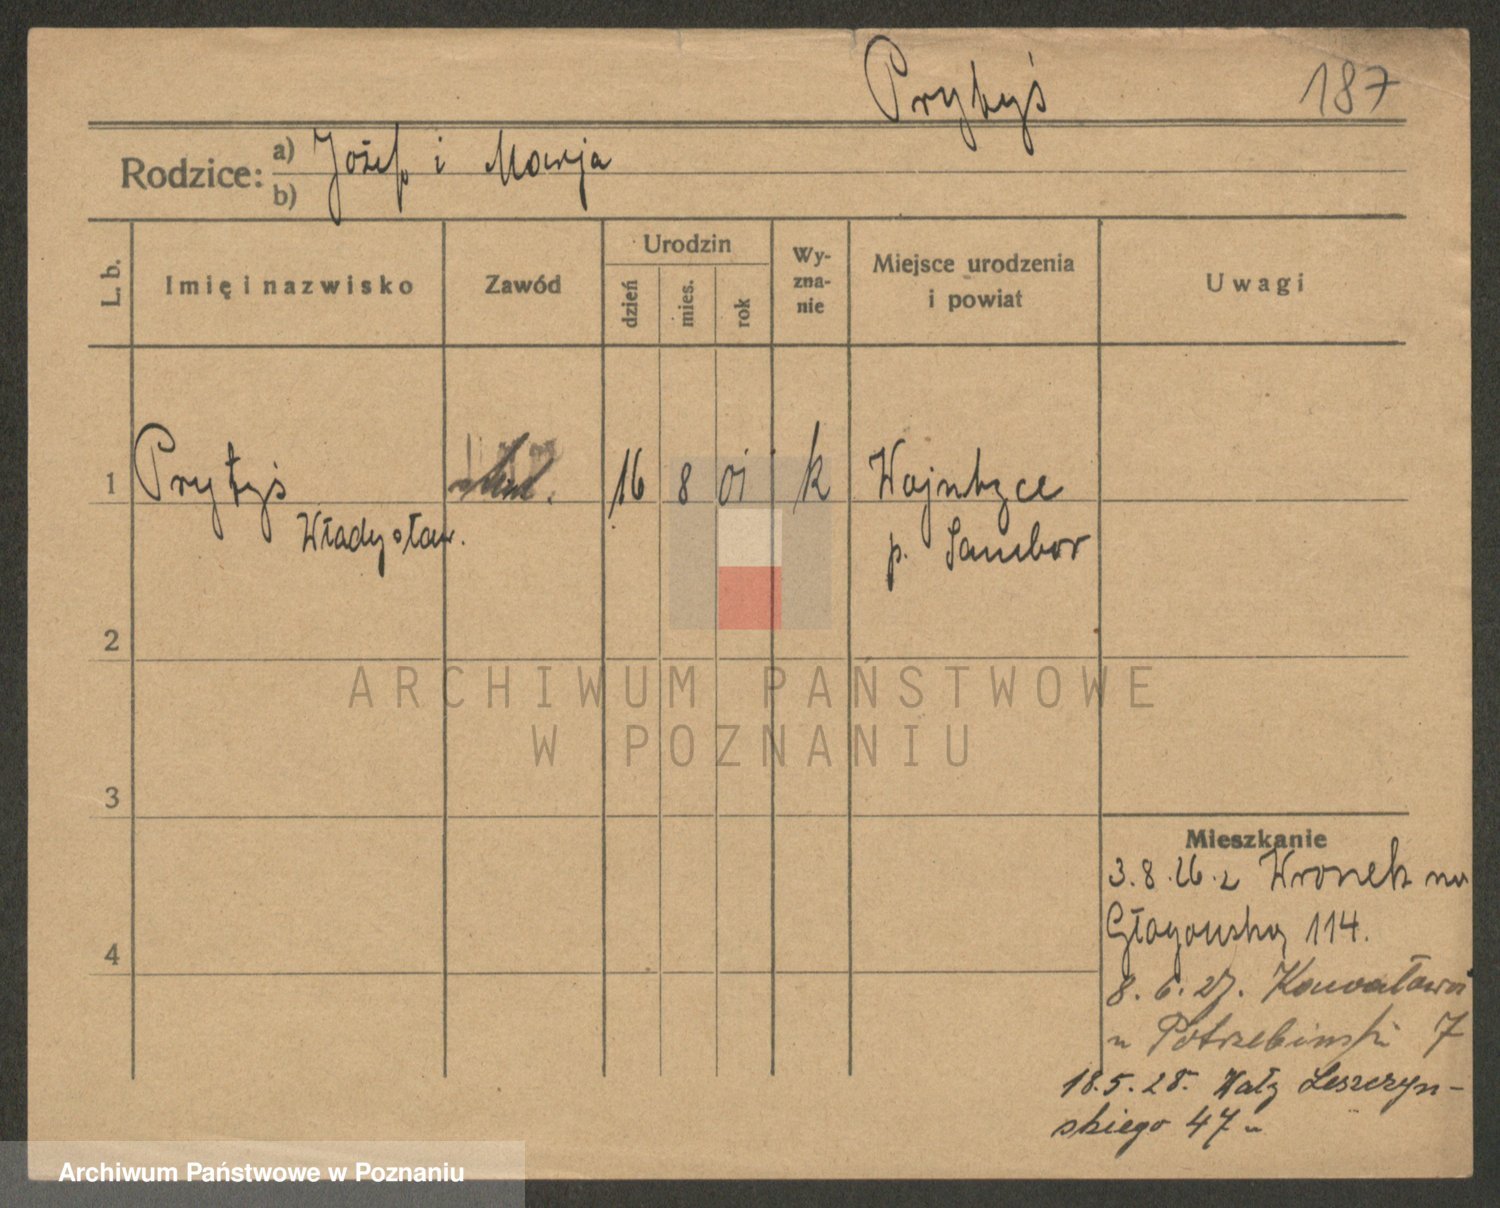 Prytyś
187
Rodzice: a) Józef i Marja
b)
L. b.
Imię i nazwisko
Zawód
Urodzin
dzień
mies.
rok
Wy-
zna-
nie
Miejsce urodzenia
i powiat
Uwagi
1 Prytyś 16 8 01 k
Władysław.
p. Sambor
2
ARCHIWUM PAŃSTWOWE
W POZNANIU
3
Mieszkanie
3.8.26. z Wronek na
Głogowską 114.
4
8.6.27.
u 7
18.5.28. Wały Leszczyn-
skiego 47
Archiwum Państwowe w Poznaniu